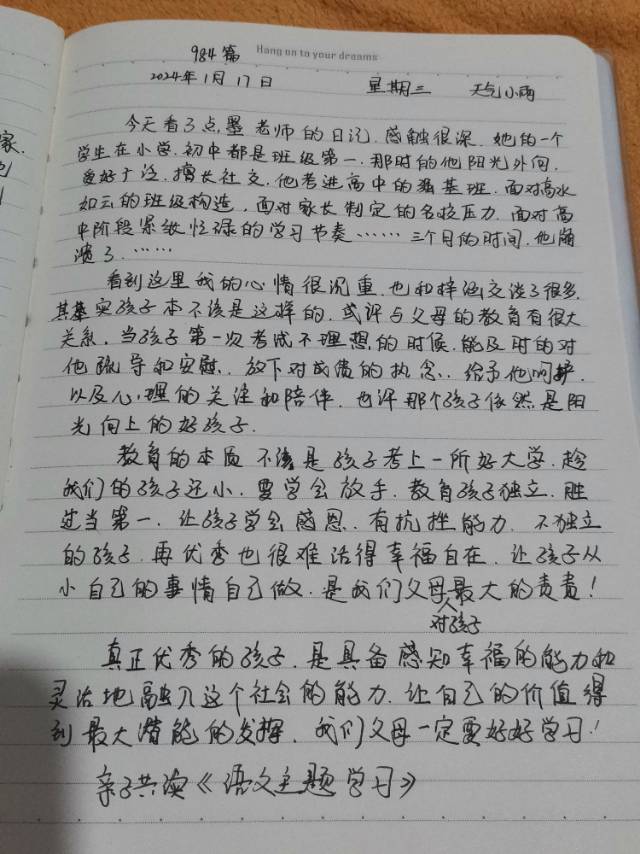 984篇 Hang on to your dreams
2024年1月17日 星期三 天气小雨
今天看了点墨老师的日记,感触很深,她的一个
学生在小学,初中都是班级第一,那时的他阳光外向,
爱好广泛,擅长社交,他考进高中的强基班,面对高水
如云的班级构造,面对家长制定的名校压力,面对高
中阶段紧张忙碌的学习节奏……三个月的时间,他崩
溃了,……
看到这里我的心情很沉重,也和梓涵交谈了很多,
其实孩子本不该是这样的,或许与父母的教育有很大
关系,当孩子第一次考试不理想的时候,能及时的对
他疏导和安慰,放下对成绩的执念,给予他呵护,
以及心理的关注和陪伴,也许那个孩子依然是阳
光向上的好孩子.
教育的本质不该是孩子考上一所好大学,趁
我们的孩子还小,要学会放手,教育孩子独立,胜
过当第一,让孩子学会感恩,有抗挫能力,不独立
的孩子,再优秀也很难活得幸福自在,让孩子从
小自己的事情自己做,是我们父母对孩子最大的责责!
真正优秀的孩子,是具备感知幸福的能力和
灵活地融入这个社会的能力,让自己的价值得
到最大潜能的发挥,我们父母一定要好好学习!
亲子共读《语文主题学习》
家.